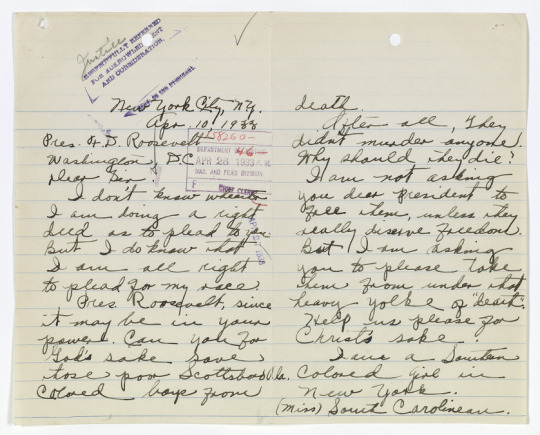 Justice
RESPECTFULLY REFERRED
FOR ACKNOWLEDGMENT
AND CONSIDERATION.
New York City, N.Y.
Apr. 10, 1933
Pres. F. D. Roosevelt
Washington, D.C.
Dear Sir
I don't know whether
I am doing a right
deed as to plead to you
But I do know that
I am all right
to plead for my race.
Pres. Roosevelt, since
it may be in your
power. Can you for
God's sake save
tose poor Scottsboro Ala.
Colored boys from
158260-
DEPARTMENT
46
APR 28 1933
MAIL AND FILES DIVISION
F
death.
After all, They
didn't murder anyone!
Why should they die?
I am not asking
you dear president to
free them, unless they
really deserve freedom.
But I am asking
you to please take
them from under that
heavy yolke of "death".
Help us please for
Christ's sake!
I am a Southern
Colored girl in
New York.
(Miss) South Carolinean.